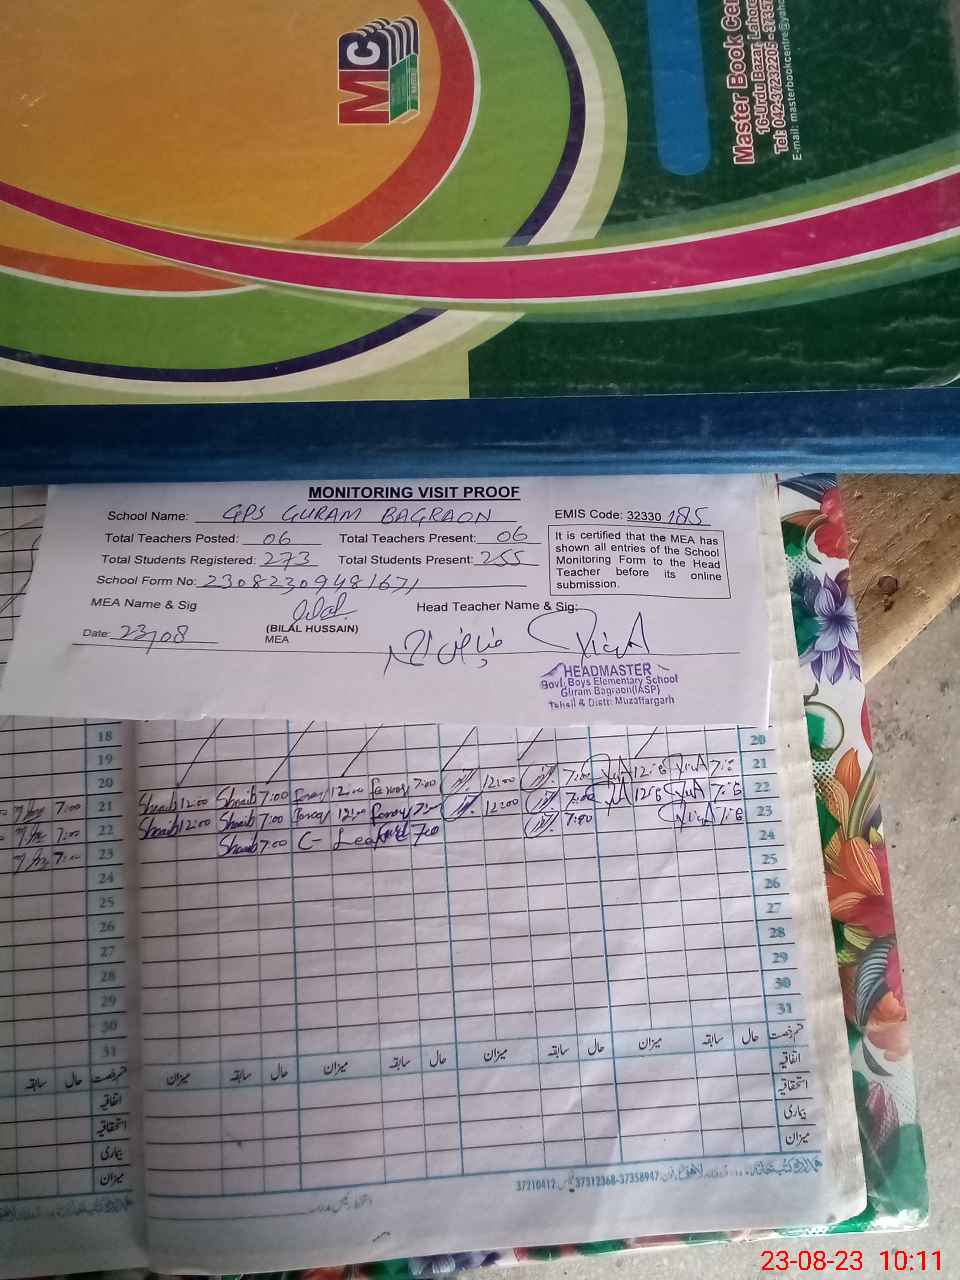 MC
Master Book Cen
16-Urdu Bazar, Lahore
Tel: 042-37232205 - 3735
E-mail: masterbookcentre@yaho
MONITORING VISIT PROOF
School Name: GPS GURAM BAGRAON
EMIS Code: 32330 185
Total Teachers Posted: 06 Total Teachers Present: 06
Total Students Registered: 273 Total Students Present: 255
School Form No: 23082309481671
It is certified that the MEA has
shown all entries of the School
Monitoring Form to the Head
Teacher before its online
submission.
MEA Name & Sig
Head Teacher Name & Sig:
(BILAL HUSSAIN)
MEA
Date: 23/08
HEADMASTER
Govt. Boys Elementary School
Guram Bagraon(IASP)
Tehsil & Distt: Muzaffargarh
18 20
19 21
20 Shoaib 12:00 Shoaib 7:00 12:00 7:00 12:00 7:00 12:15 7:15 22
21 7:00 Shoaib 12:00 Shoaib 7:00 12:00 7:00 12:00 7:00 12:15 7:15 23
22 7:00 Shoaib 7:00 C- Leave 7:00 7:00 7:15 24
23 7:00 25
24 26
25 27
26 28
27 29
28 30
29 31
30
31
قسم رخصت حال سابقہ میزان حال سابقہ میزان حال سابقہ میزان حال سابقہ میزان
اتفاقیہ
استحقاقیہ
بیماری
میزان
قسم رخصت حال سابقہ
اتفاقیہ
استحقاقیہ
بیماری
میزان
37210412 37312368-37358947
23-08-23 10:11